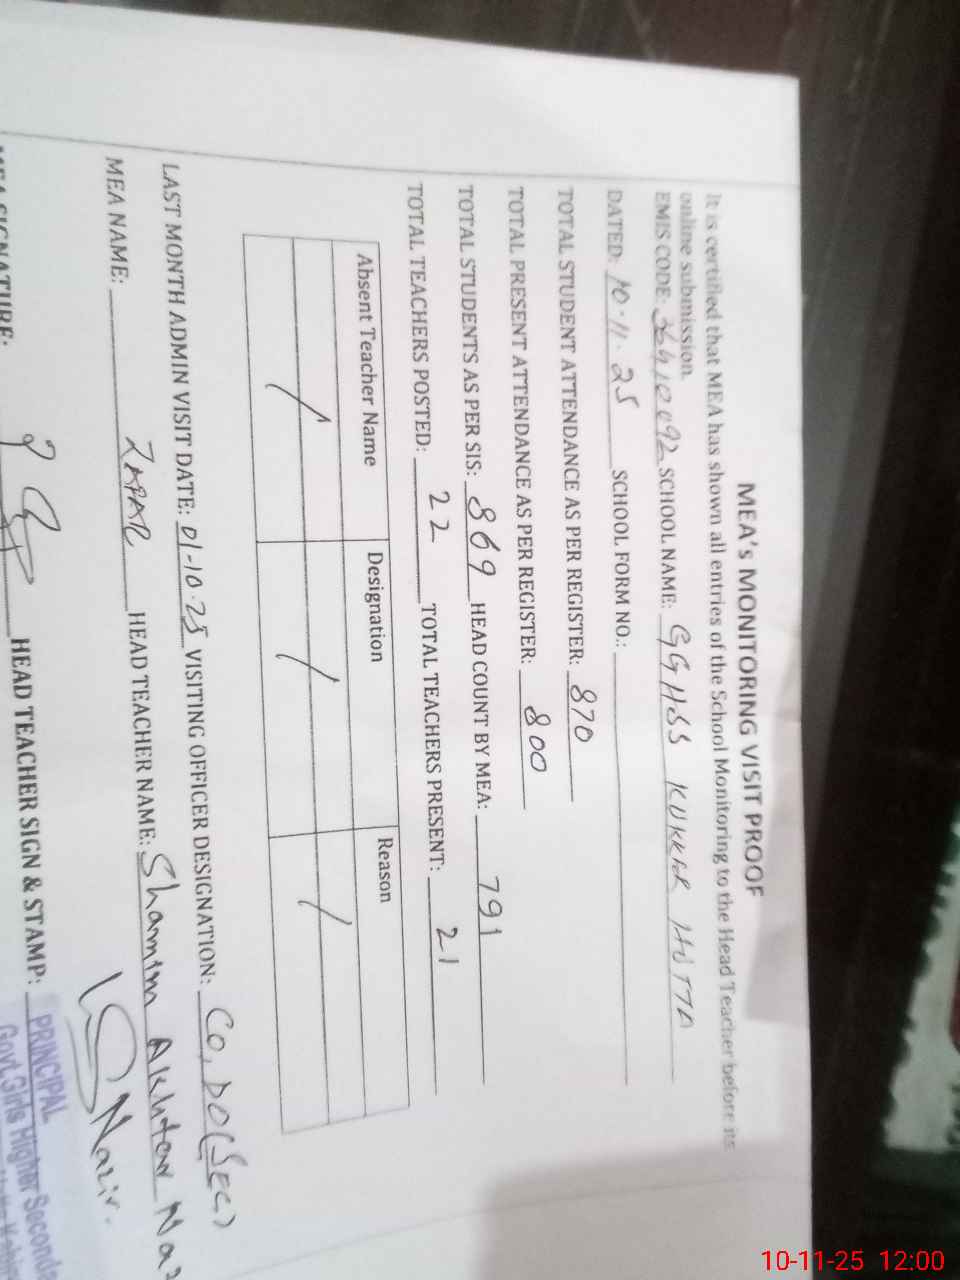 MEA's MONITORING VISIT PROOF
It is certified that MEA has shown all entries of the School Monitoring to the Head Teacher before its
online submission.
EMIS CODE: 36410092 SCHOOL NAME: GGHSS KUKKAR HUTTA
DATED: 10-11-25 SCHOOL FORM NO.:
TOTAL STUDENT ATTENDANCE AS PER REGISTER: 870
TOTAL PRESENT ATTENDANCE AS PER REGISTER: 800
TOTAL STUDENTS AS PER SIS: 869 HEAD COUNT BY MEA: 791
TOTAL TEACHERS POSTED: 22 TOTAL TEACHERS PRESENT: 21
Absent Teacher Name Designation Reason
/ / /
LAST MONTH ADMIN VISIT DATE: 01-10-25 VISITING OFFICER DESIGNATION: CO, DO(SEC)
MEA NAME: ZAFAR HEAD TEACHER NAME: Shamim Akhtar
MEA SIGNATURE: HEAD TEACHER SIGN & STAMP: Nazir.
PRINCIPAL
Govt. Girls Higher
10-11-25 12:00